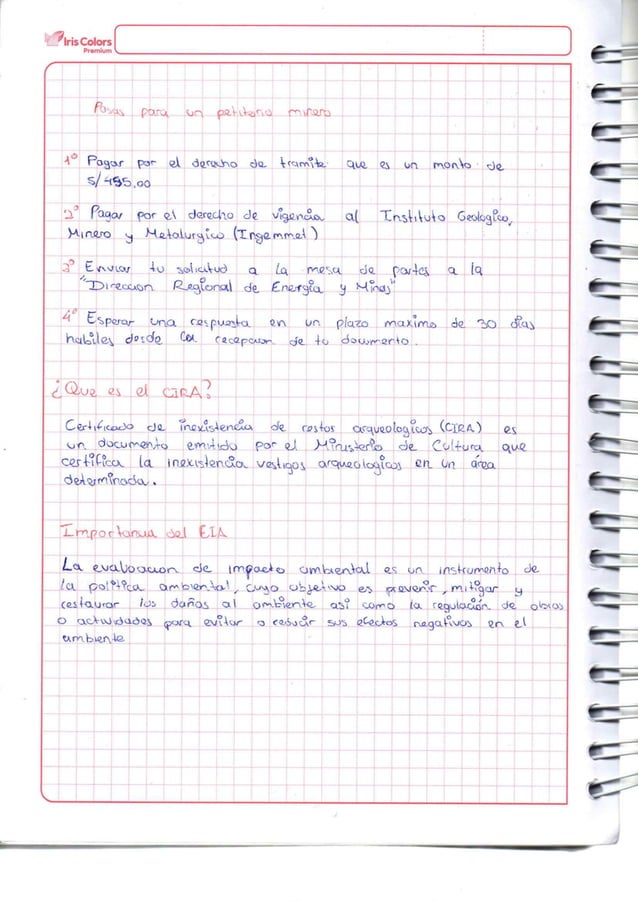 Iris Colors
Premium
Pasos para un petitorio minero
1° Pagar por el derecho de tramite que es un monto de
S/495.00
2° Pagar por el derecho de vigencia al Instituto Geologico,
Minero y Metalurgico (Ingemmet)
3° Enviar tu solicitud a la mesa de partes a la
"Direccion Regional de Energía y Minas"
4° Esperar una respuesta en un plazo maximo de 30 días
habiles desde la recepcion de tu documento.
¿Que es el CIRA?
Certificado de inexistencia de restos arqueologicos (CIRA) es
un documento emitido por el Ministerio de Cultura que
certifica la inexistencia vestigos arqueologicos en un área
determinada.
Importancia del EIA
La evaluacion de impacto ambiental es un instrumento de
la politica ambiental, cuyo objetivo es prevenir, mitigar y
restaurar los daños al ambiente asi como la regulación de obras
o actividades para evitar o reducir sus efectos negativos en el
ambiente